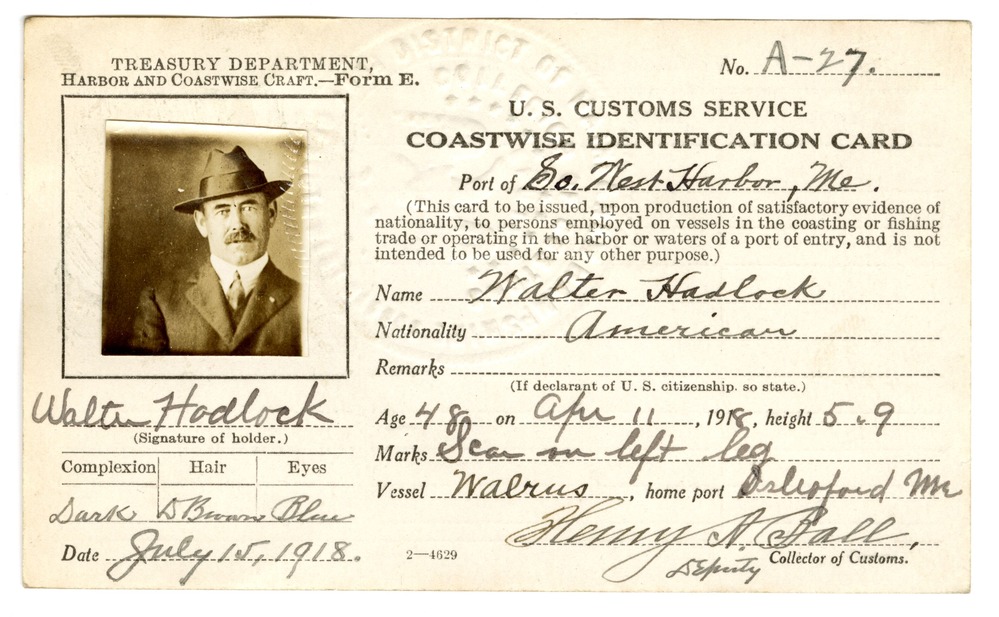 TREASURY DEPARTMENT,
HARBOR AND COASTWISE CRAFT.—Form E.
No. A-27.
U. S. CUSTOMS SERVICE
COASTWISE IDENTIFICATION CARD
Port of So. West Harbor, Me.
(This card to be issued, upon production of satisfactory evidence of
nationality, to persons employed on vessels in the coasting or fishing
trade or operating in the harbor or waters of a port of entry, and is not
intended to be used for any other purpose.)
Name Walter Hadlock
Nationality American
Remarks
(If declarant of U. S. citizenship, so state.)
Age 48 on Apr 11, 1918, height 5.9
Marks Scar on left leg
Vessel Walrus, home port Me
Henry A. Ball,
Deputy Collector of Customs.
Walter Hadlock
(Signature of holder.)
Complexion Hair Eyes
Dark D Brown Blue
Date July 15, 1918.
2—4629
DISTRICT OF